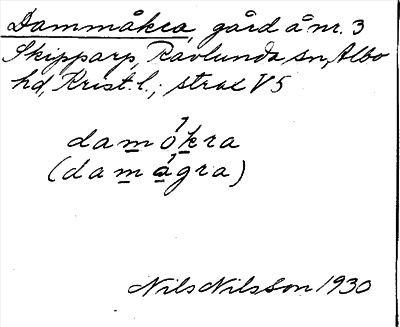 Dammåkra, gård å nr. 3
Skipparp, Ravlunda sn, Albo
hd, Krist. l.; strax V 5
damókra
(damágra)
Nils Nilsson 1930